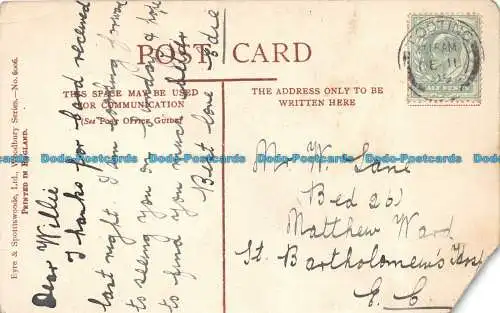 POST CARD
THIS SPACE MAY BE USED
FOR COMMUNICATION
(See Post Office Guide)
THE ADDRESS ONLY TO BE
WRITTEN HERE
Eyre & Spottiswoode, Ltd., Woodbury Series.—No. 6006.
PRINTED IN ENGLAND.
Dear Willie
Thanks for card received
last night. I am looking forward
to seeing you on Sunday & hope
to find you much better
Best love Edie
Mr W. Lane
Bed 26
Matthew Ward
St. Bartholomew's Hosp
E. C
HALF PENNY
Dodo-Postcards Dodo-Postcards Dodo-Postcards Dodo-Postcards